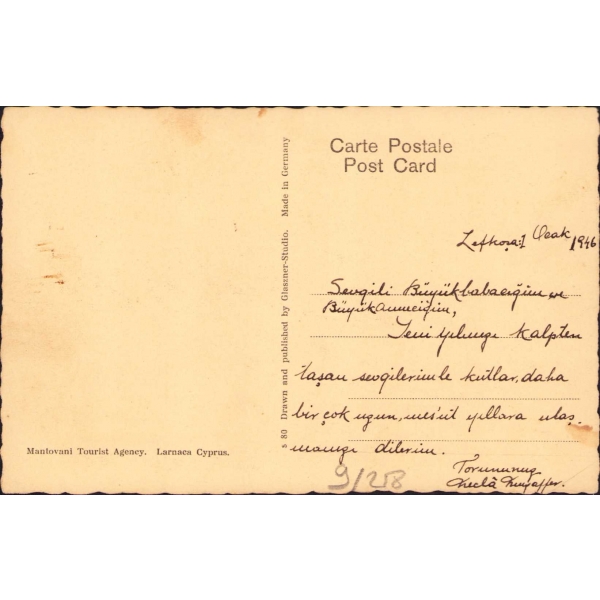 Carte Postale
Post Card
Lefkoşa: 1 Ocak 1946
Sevgili Büyükbabacığım ve
Büyükanneciğim,
Yeni yılınızı kalpten
taşan sevgilerimle kutlar, daha
bir çok uzun, mes'ut yıllara ulaş-
manızı dilerim.
Torununuz
Muzaffer.
9/258
s 80 Drawn and published by Glaszner-Studio. Made in Germany
Mantovani Tourist Agency. Larnaca Cyprus.